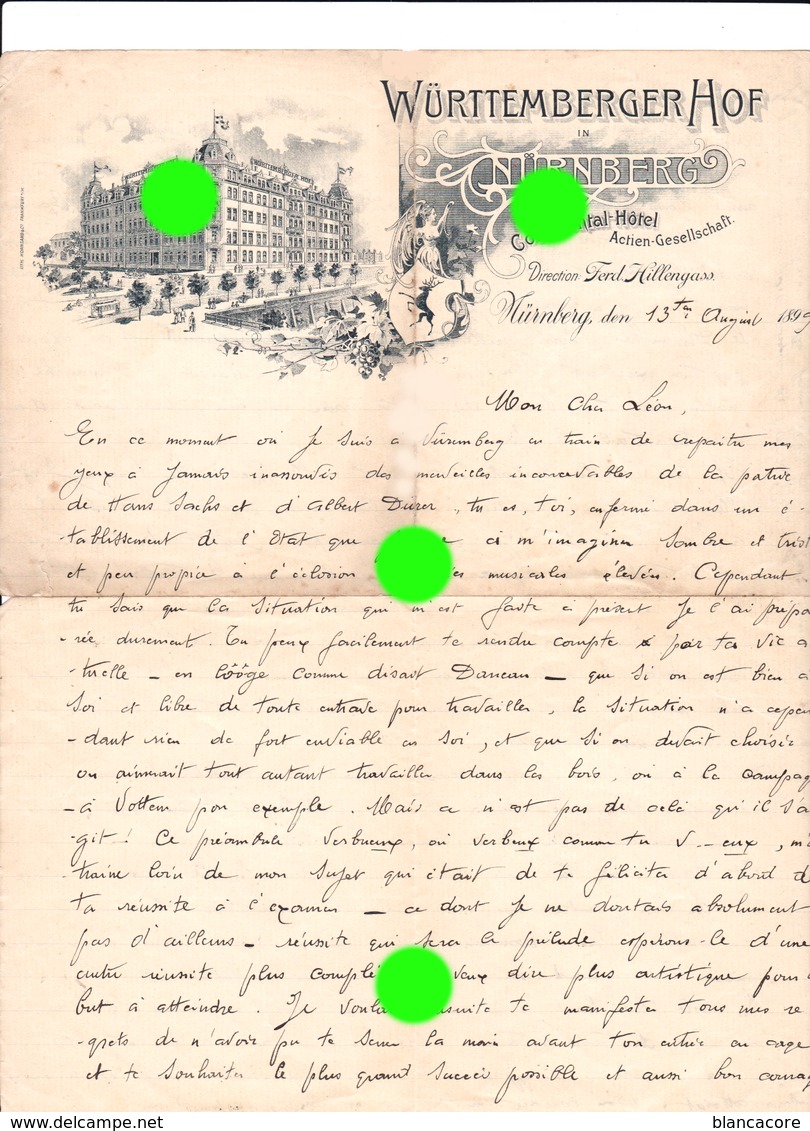 WÜRTTEMBERGER HOF
IN
NÜRNBERG
Continental-Hôtel
Actien-Gesellschaft.
Direction: Ferd. Hillengass.
Nürnberg, den 13ten August 1899
Mon Cher Léon,
En ce moment où je suis a Nuremberg en train de repaitre mes
yeux à jamais inassouvis des merveilles inconcevables de la patrie
de Hans Sachs et d'Albert Durer, tu es, toi, enfermé dans un é-
tablissement de l'Etat que à m'imaginer sombre et trist
et peu propice à l'éclosion musicales élevées. Cependant
tu sais que la situation qui m'est faite à présent je l'ai prépa
-rée durement. Tu peux facilement te rendre compte par ta vie a
tuelle — en lôôge comme disait Dancau — que si on est bien a
soi et libre de toute entrave pour travailler, la situation n'a cepen
-dant rien de fort enviable en soi, et que si on devait choisir
on aimerait tout autant travailler dans les bois, ou à la campag
-à Vottem par exemple. Mais ce n'est pas de cela qu'il s'a
-git! Ce préambule verbueux, ou verbeux comme tu v--eux, m'
-traine loin de mon sujet qui était de te féliciter d'abord d
ta réussite à l'examen — ce dont je ne doutais absolument
pas d'ailleurs — réussite qui sera le prélude espérons-le d'une
autre réussite plus veux dire plus artistique pour
but à atteindre. Je te manifester tous mes re
-grets de n'avoir pu te serrer la main avant ton entrée en cage
et te souhaiter le plus grand succès possible et aussi bon courag
blancacore